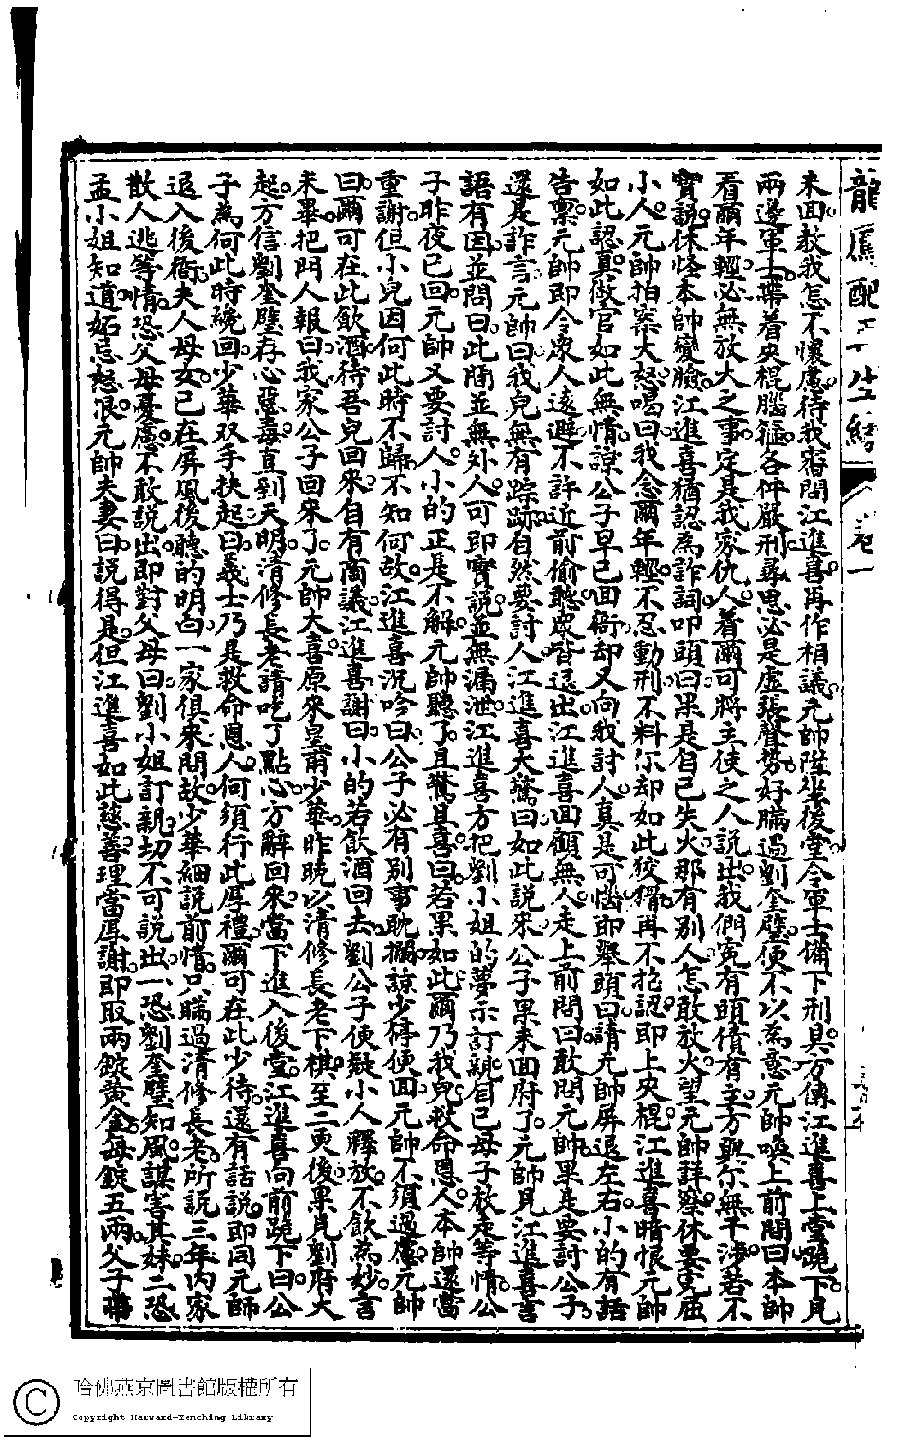 龍鳳配再生緣 卷一
未回教我怎不懷慮待我審問江進喜再作相議元帥陞坐後堂令軍士備下刑具方傳江進喜上堂跪下見
兩邊軍士帶着夾棍腦箍各件嚴刑尋思必是虛張聲勢好瞞過劉奎璧便不以為意元帥喚上前問曰本帥
看爾年輕必無放火之事定是我家仇人着爾可將主使之人說出我們冤有頭債有主方與尔無干涉若不
實說休怪本帥變臉江進喜猶認為詐詞叩頭曰果是自己失火那有別人怎敢放火望元帥詳察休要冤屈
小人元帥拍案大怒喝曰我念爾年輕不忍動刑不料尔却如此狡猾再不招認即上夾棍江進喜暗恨元帥
如此認真做官如此無情諒公子早已回衙却又向我討人真是可惱即舉頭曰請元帥屏退左右小的有語
告稟元帥即令眾人遠避不許近前偷聽眾皆退出江進喜回顧無人走上前問曰敢問元帥果是要討公子
還是詐言元帥曰我兒無有踪跡自然要討人江進喜大驚曰如此說來公子果未回府了元帥見江進喜言
語有因並問曰此間並無外人可即實說並無漏泄江進喜方把劉小姐的夢示訂親自己母子救走等情公
子昨夜已回元帥又要討人小的正是不解元帥聽了且驚且喜曰若果如此爾乃我兒救命恩人本帥還當
重謝但小兒因何此時不歸不知何故江進喜沉吟曰公子必有別事耽擱諒少停便回元帥不須過慮元帥
曰爾可在此飲酒待吾兒回來自有商議江進喜謝曰小的若飲酒回去劉公子便疑小人釋放不飲為妙言
未畢把門人報曰我家公子回來了元帥大喜原來皇甫少華昨晚以清修長老下棋至二更後果見劉府火
起方信劉奎璧存心惡毒直到天明清修長老請吃了點心方辭回來當下進入後堂江進喜向前跪下曰公
子為何此時纔回少華双手扶起曰義士乃是救命恩人何須行此厚禮爾可在此少待還有話說即同元帥
退入後衙夫人母女已在屏風後聽的明白一家俱來問故少華細說前情只瞞過清修長老所說三年內家
散人逃等情恐父母憂慮不敢說出即對父母曰劉小姐訂親切不可說出一恐劉奎璧知風謀害其妹二恐
孟小姐知道妬忌怒恨元帥夫妻曰說得是但江進喜如此慈善理當厚謝即取兩錠黃金每錠五兩父子
哈佛燕京圖書館版權所有
Copyright Harvard-Yenching Library